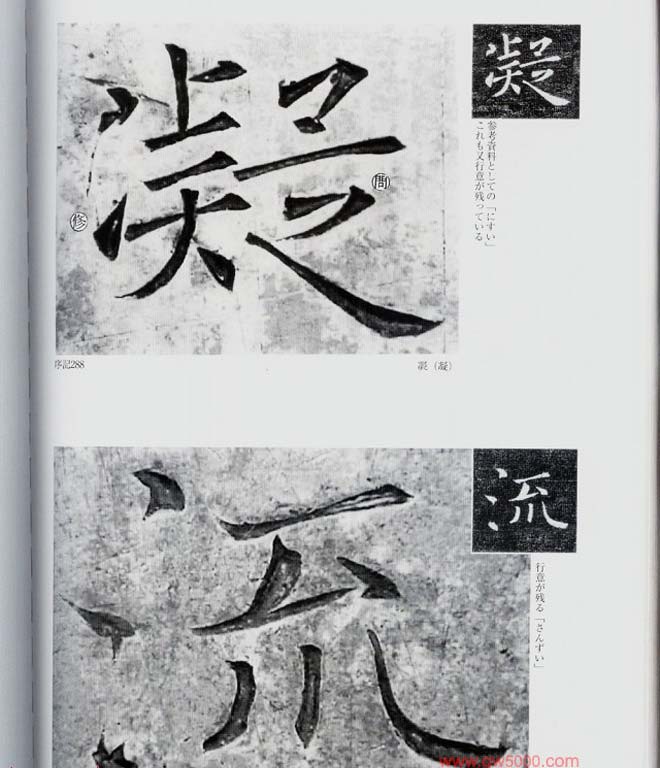 凝
凝
参考資料としての「にすい」
これも又行意が残っている
修
序記288
（凝）
流
流
行意が残る「さんずい」
www.qw5000.com